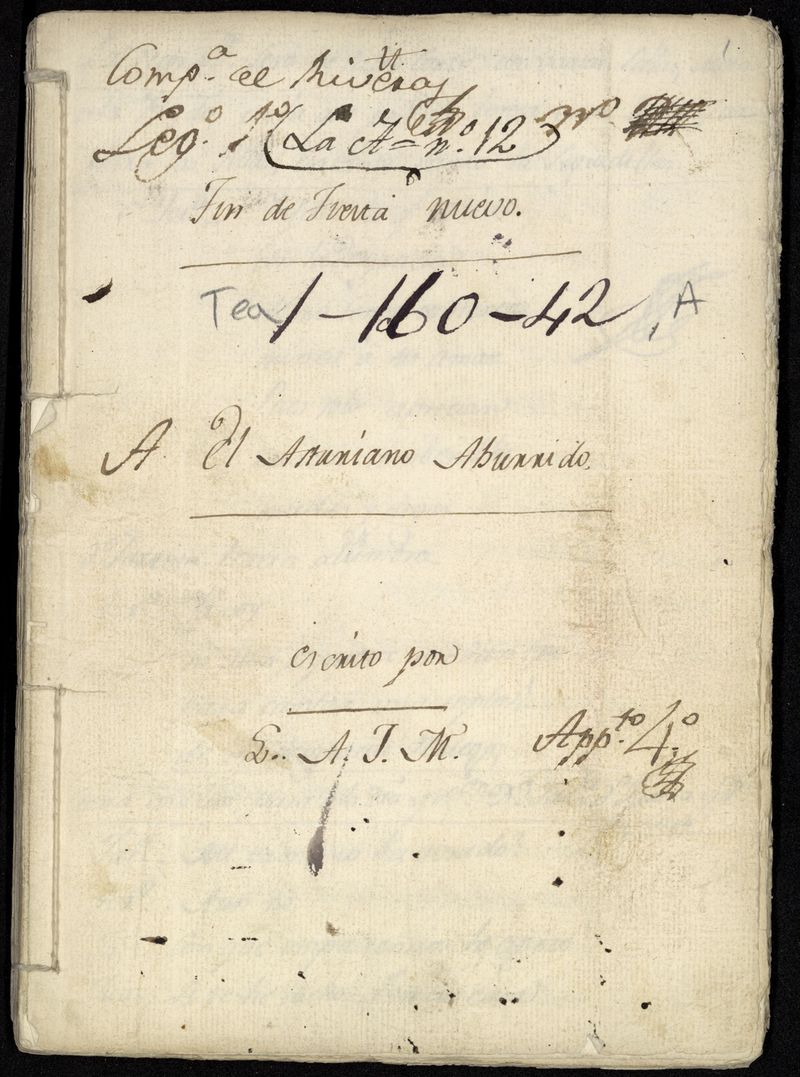 Comp.ª de Riveraᵗᵗ
Leg.º 1º (La A= n.º 12) nº
Fin de Fiesta nuevo.
Tea 1-160-42, A
A El Asturiano Aburrido.
escrito por
L. A. J. M. App.to 4.º